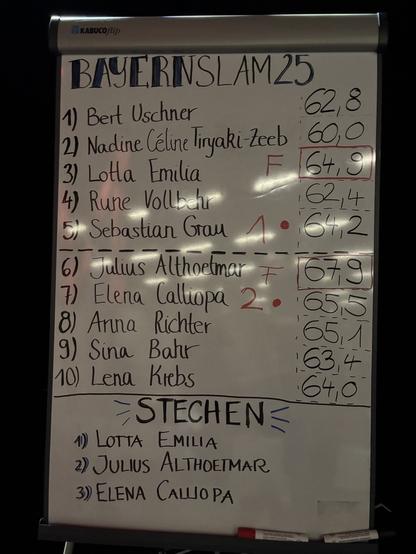 KABUCOflip
BAYERNSLAM25
1) Bert Uschner 62,8
2) Nadine Céline Tiryaki-Zeeb 60,0
3) Lotta Emilia F 64,9
4) Rune Vollbehr 62,4
5) Sebastian Grau 1 • 64,2
6) Julius Althoetmar F 67,9
7) Elena Calliopa 2 • 65,5
8) Anna Richter 65,1
9) Sina Bahr 63,4
10) Lena Krebs 64,0
STECHEN
1) LOTTA EMILIA
2) JULIUS ALTHOETMAR
3) ELENA CALLIOPA